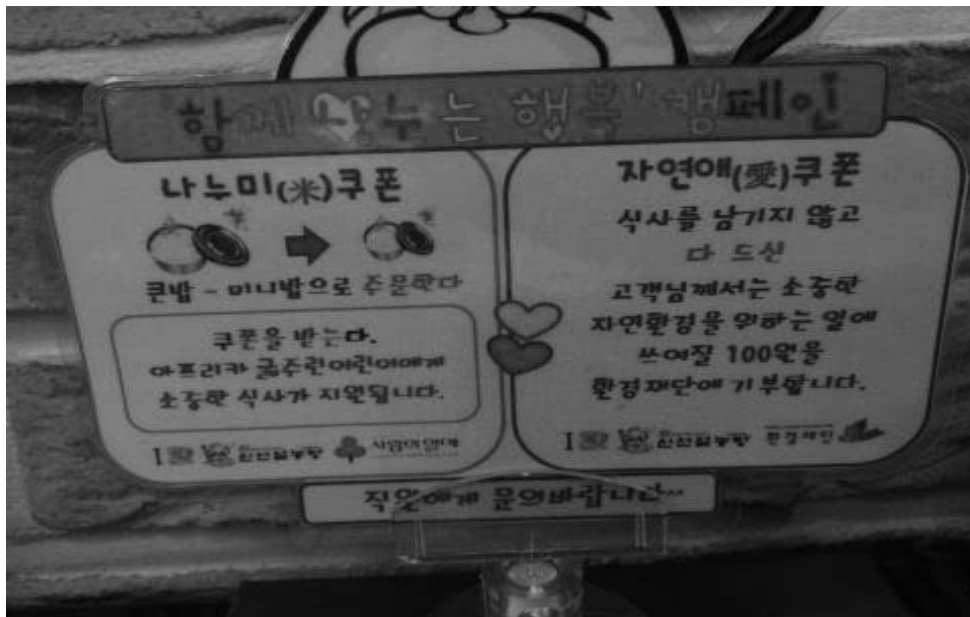 '함께 나누는 행복' 캠페인
나누미(米)쿠폰
큰밥 - 미니밥으로 주문한다
쿠폰을 받는다.
아프리카 굶주린어린이에게
소중한 식사가 지원됩니다.
자연애(愛)쿠폰
식사를 남기지 않고
다 드신
고객님께서는 소중한
자연환경을 위하는 일에
쓰여질 100원을
환경재단에 기부합니다.
직원에게 문의바랍니다